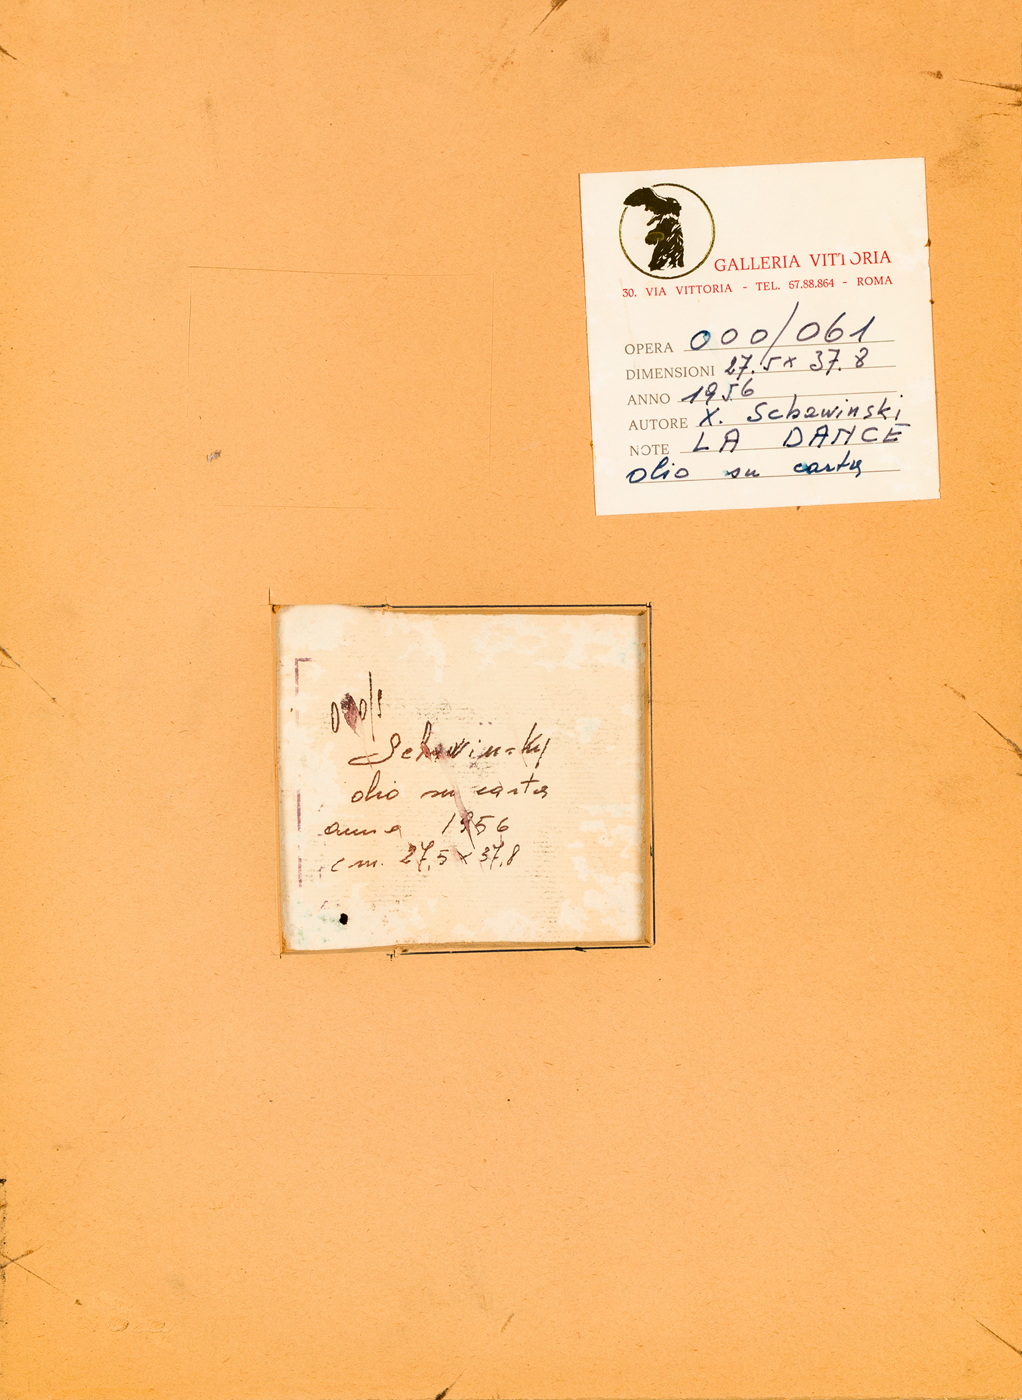 GALLERIA VITTORIA
30. VIA VITTORIA - TEL. 67.88.864 - ROMA
OPERA 000/061
DIMENSIONI 27.5 x 37.8
ANNO 1956
AUTORE X. Schawinski
NOTE LA DANCE
olio su carta
Schawinsky
olio su carta
anno 1956
cm. 27,5 x 37,8